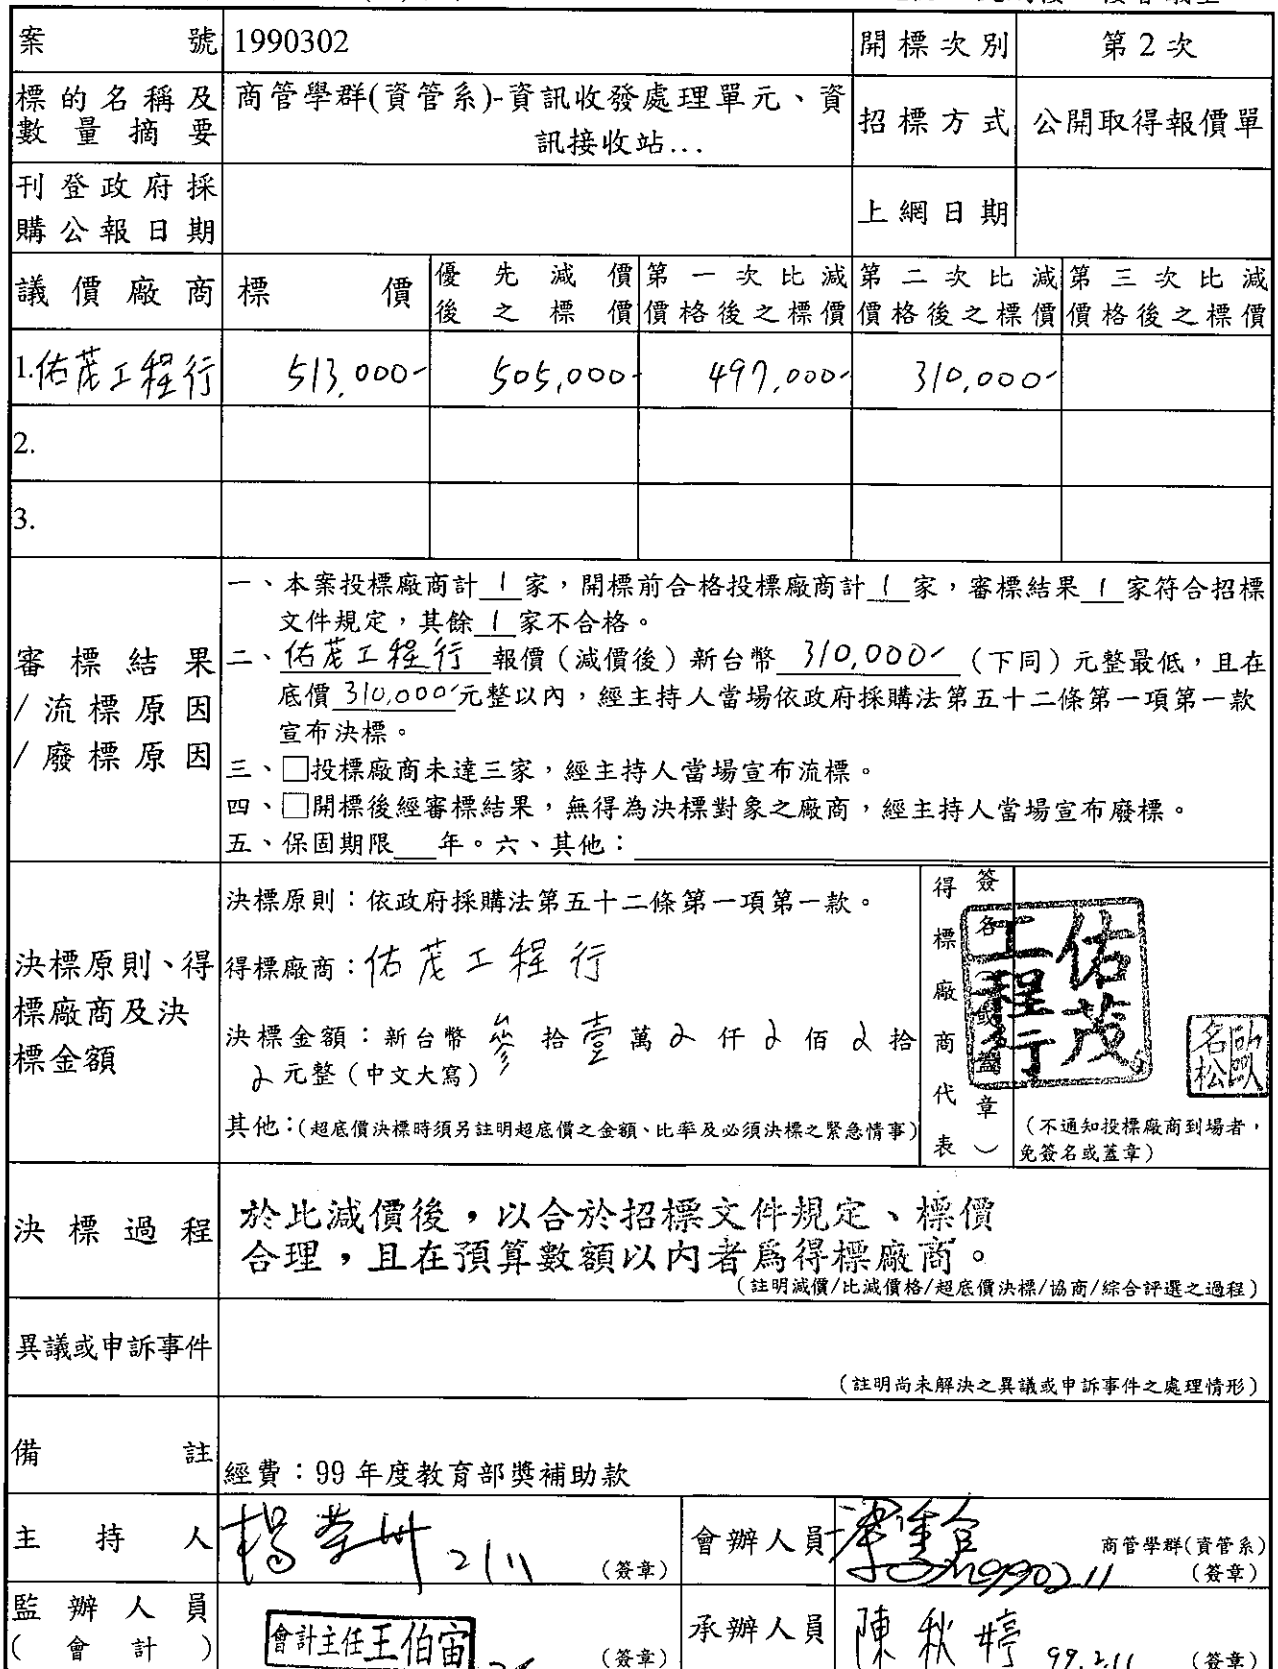 案號 1990302 開標次別 第2次
標的名稱及 商管學群(資管系)-資訊收發處理單元、資 招標方式 公開取得報價單
數量摘要 訊接收站…
刊登政府採 上網日期
購公報日期
議價廠商 標價 優先減價 第一次比減 第二次比減 第三次比減
後之標價 價格後之標價 價格後之標價 價格後之標價
1.佑茂工程行 513,000- 505,000- 497,000- 310,000-
2.
3.
一、本案投標廠商計 1 家,開標前合格投標廠商計 1 家,審標結果 1 家符合招標
文件規定,其餘 1 家不合格。
審標結果 二、佑茂工程行 報價(減價後)新台幣 310,000- (下同)元整最低,且在
/流標原因 底價 310,000-元整以內,經主持人當場依政府採購法第五十二條第一項第一款
宣布決標。
/廢標原因 三、□投標廠商未達三家,經主持人當場宣布流標。
四、□開標後經審標結果,無得為決標對象之廠商,經主持人當場宣布廢標。
五、保固期限___年。六、其他:
決標原則、得
標廠商及決
標金額
決標原則:依政府採購法第五十二條第一項第一款。
得標廠商:佑茂工程行
決標金額:新台幣 參 拾 壹 萬 仟 佰 拾
元整(中文大寫)
其他:(超底價決標時須另註明超底價之金額、比率及必須決標之緊急情事)
得標廠商代表
簽名或蓋章)
佑茂
工程行
歐
名松
(不通知投標廠商到場者,
免簽名或蓋章)
決標過程 於比減價後,以合於招標文件規定、標價
合理,且在預算數額以內者為得標廠商。
(註明減價/比減價格/超底價決標/協商/綜合評選之過程)
異議或申訴事件
(註明尚未解決之異議或申訴事件之處理情形)
備註
經費:99年度教育部獎補助款
主持人 2/11 (簽章) 會辦人員 商管學群(資管系)
990211 (簽章)
監辦人員
(會計) 會計主任王伯宙 (簽章) 承辦人員 陳秋婷 99.2.11 (簽章)